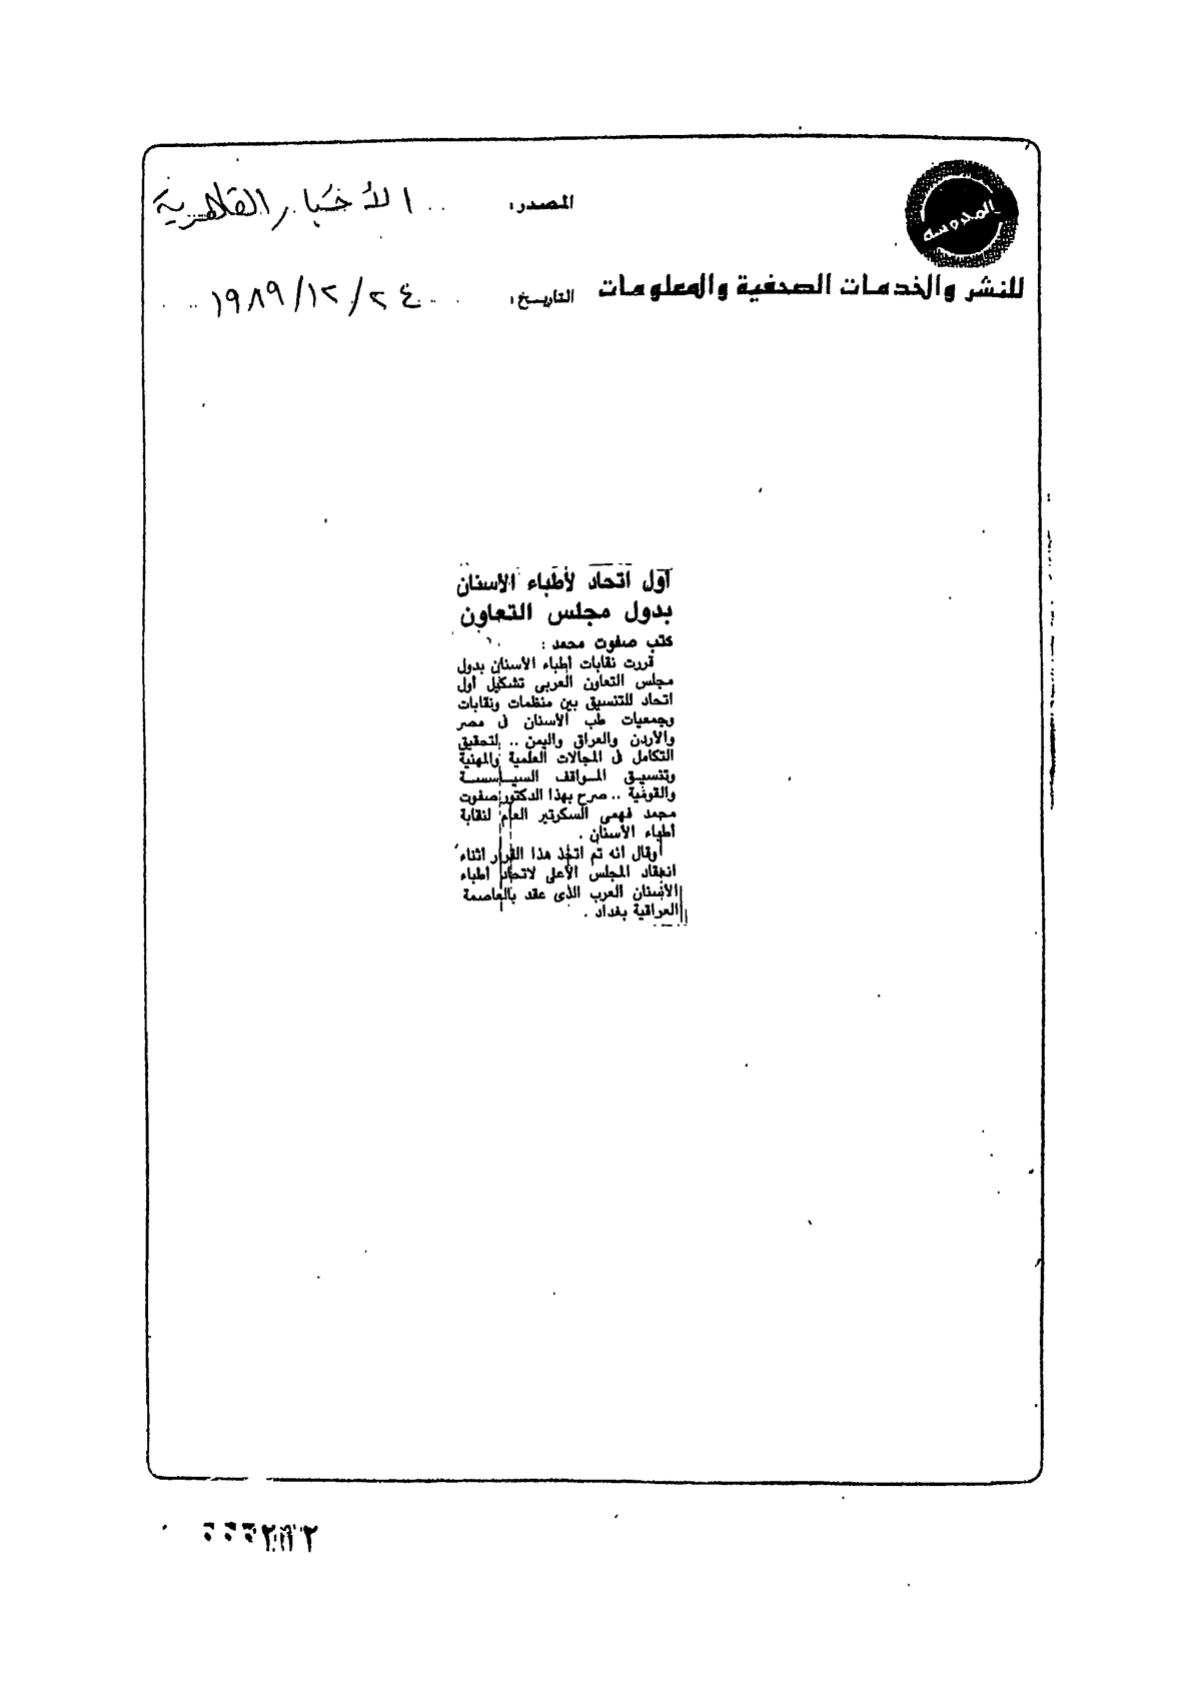 المحروسة
للنشر والخدمات الصحفية والمعلومات
المصدر: الأخبار القاهرية
التاريخ: ٢٤/١٢/١٩٨٩
أول اتحاد لأطباء الأسنان
بدول مجلس التعاون
كتب صفوت محمد :
قررت نقابات أطباء الأسنان بدول
مجلس التعاون العربى تشكيل أول
اتحاد للتنسيق بين منظمات ونقابات
وجمعيات طب الأسنان فى مصر
والأردن والعراق واليمن .. لتحقيق
التكامل فى المجالات العلمية والمهنية
وتنسيق المواقف السياسسة
والقومية .. صرح بهذا الدكتور صفوت
محمد فهمى السكرتير العام لنقابة
أطباء الأسنان .
وقال انه تم اتخذ هذا القرار اثناء
انعقاد المجلس الأعلى لاتحاد أطباء
الأسنان العرب الذى عقد بالعاصمة
العراقية بغداد .